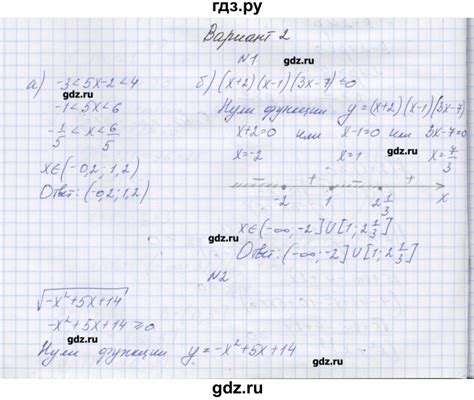 гдз.ру
Вариант 2
N1
а) -3<5x-2<4
-1<5x<6
-1/5<x<6/5
x∈(-0,2; 1,2)
Ответ: (-0,2; 1,2)
б) (x+2)(x-1)(3x-7)≤0
Нули функции y=(x+2)(x-1)(3x-7)
x+2=0 или x-1=0 или 3x-7=0
x=-2 x=1 x=7/3
- + - +
-2 1 2 1/3 x
x∈(-∞; -2]∪[1; 2 1/3]
Ответ: (-∞; -2]∪[1; 2 1/3]
N2
√-x²+5x+14
-x²+5x+14≥0
Нули функции y=-x²+5x+14
gdz.ru
gdz.ru
gdz.ru
gdz.ru
gdz.ru
gdz.ru
gdz.ru
gdz.ru
gdz.ru
gdz.ru